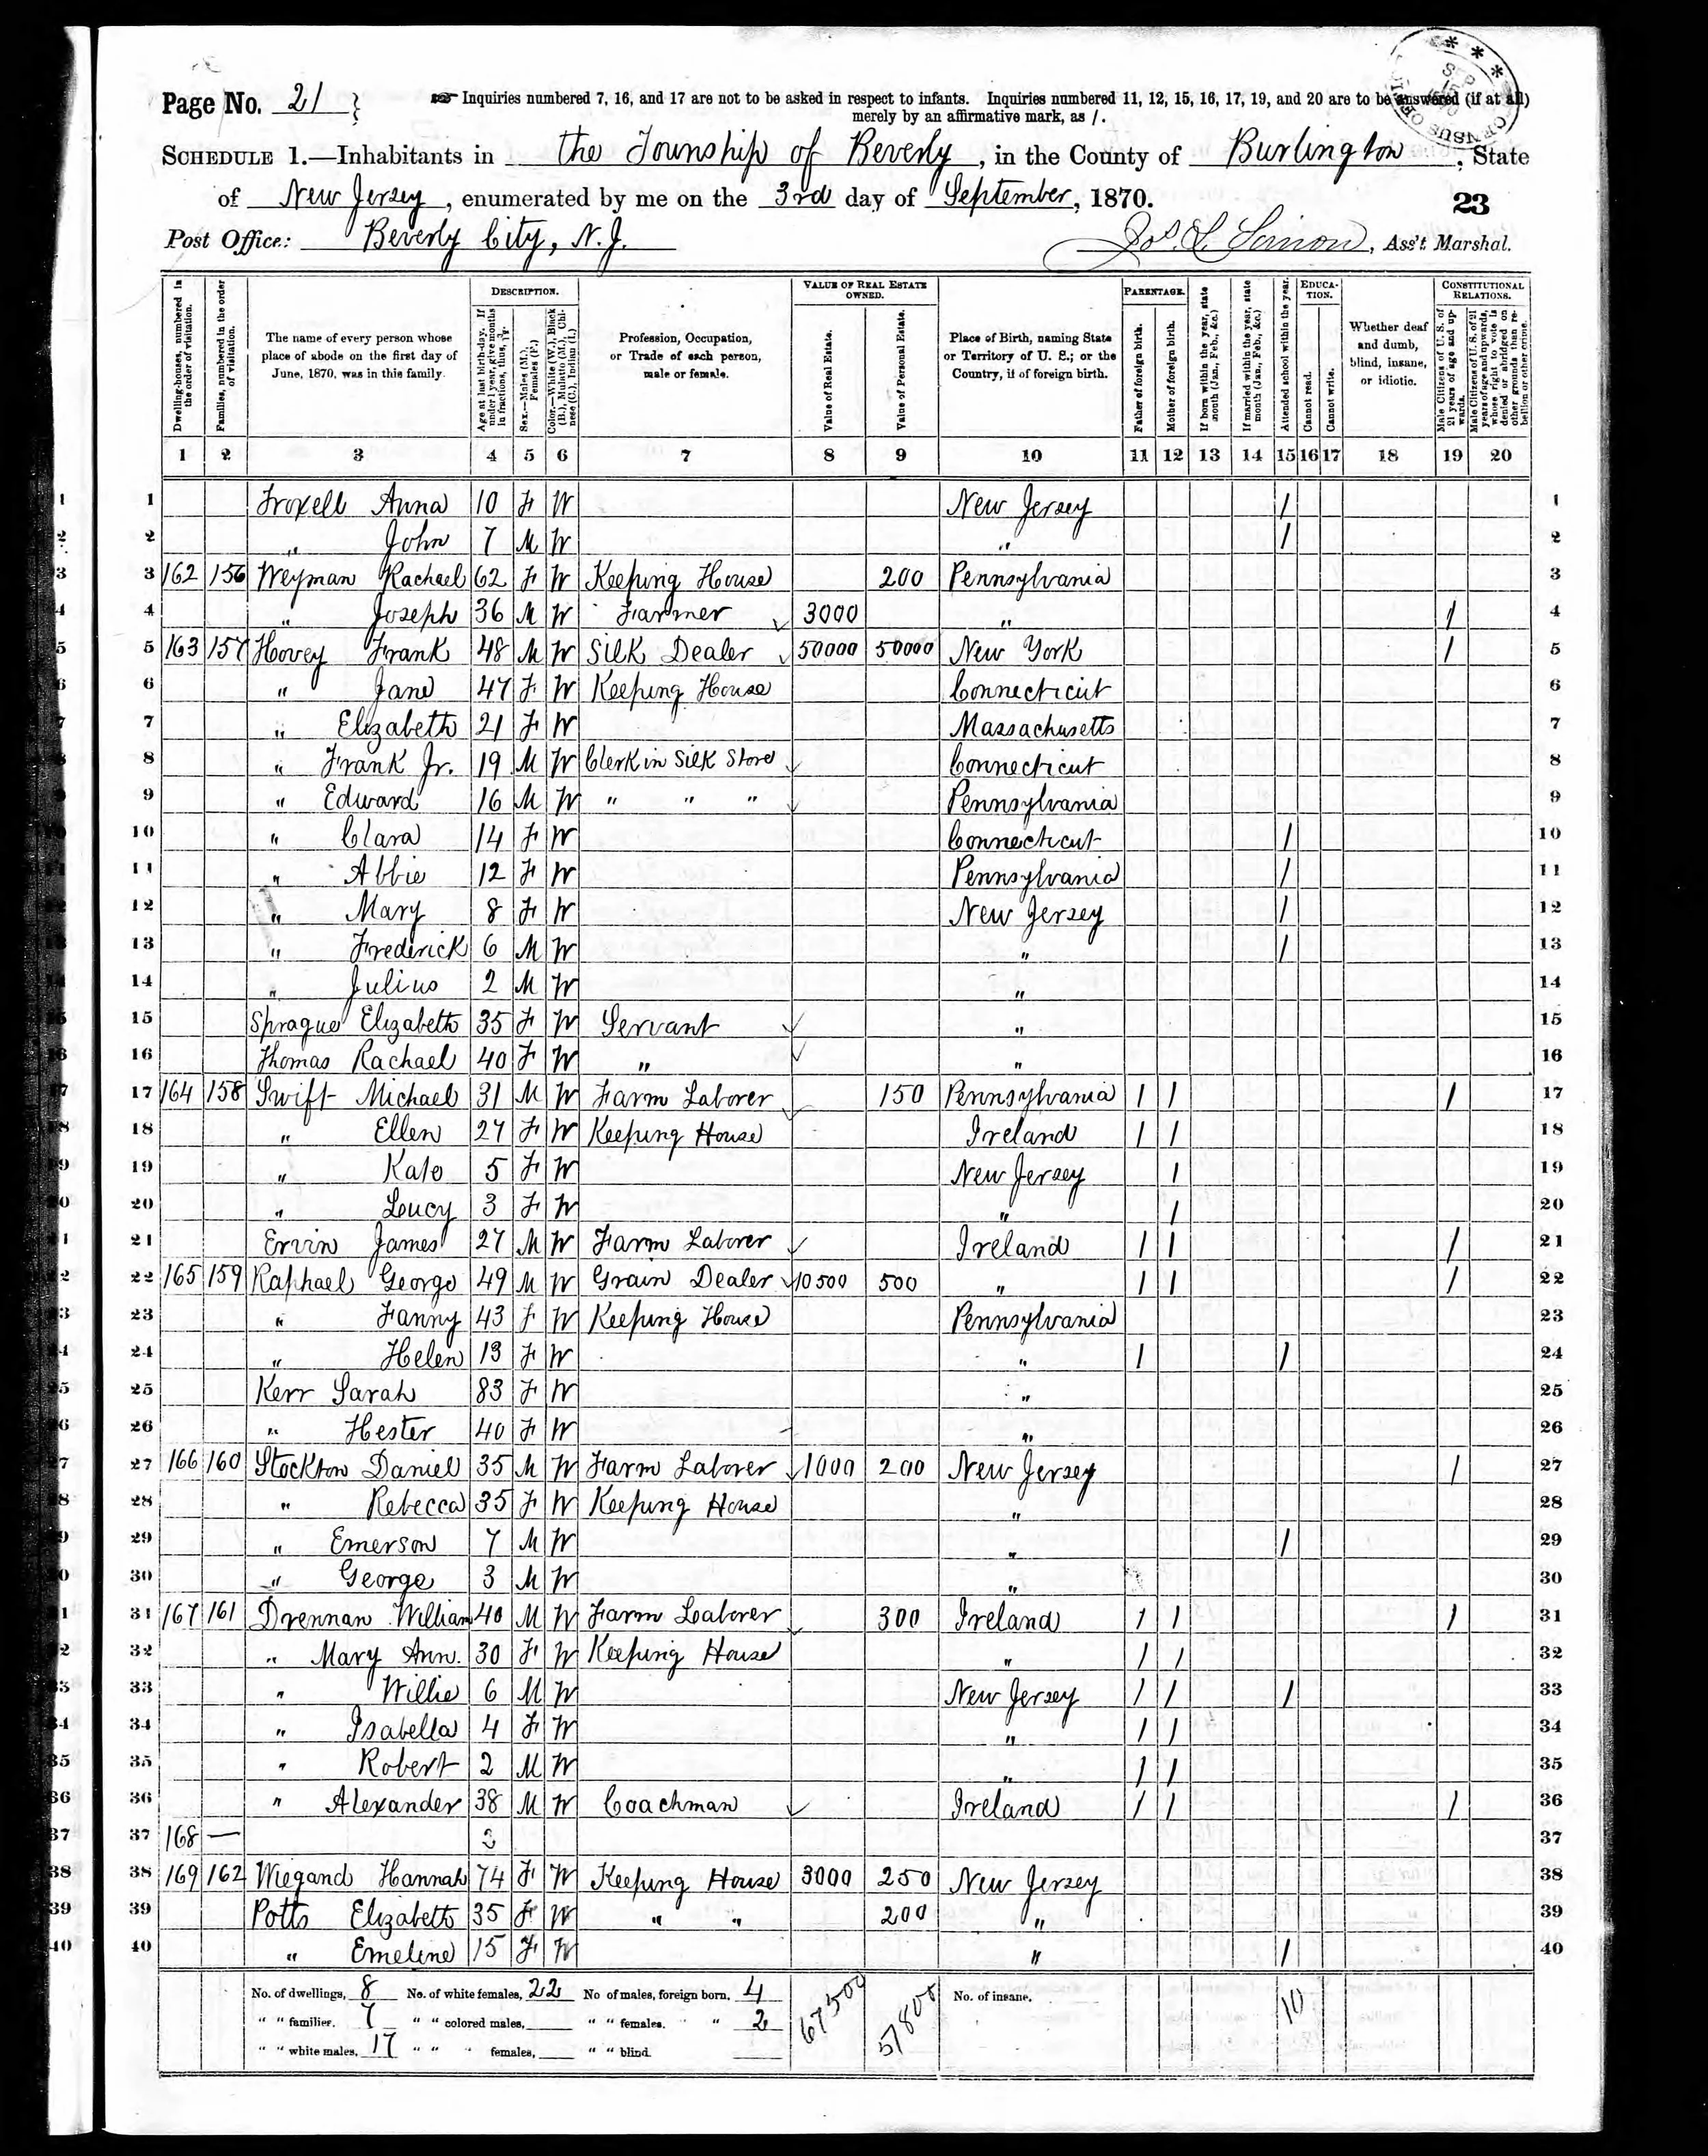 Page No. 21
☞ Inquiries numbered 7, 16, and 17 are not to be asked in respect to infants. Inquiries numbered 11, 12, 15, 16, 17, 19, and 20 are to be answered (if at all)
merely by an affirmative mark, as /.
SCHEDULE 1.—Inhabitants in the Township of Beverly, in the County of Burlington, State
of New Jersey, enumerated by me on the 3rd day of September, 1870.
23
Post Office: Beverly City, N.J.
Ass't Marshal.
Dwelling-houses, numbered in the order of visitation.
Families, numbered in the order of visitation.
The name of every person whose place of abode on the first day of June, 1870, was in this family.
DESCRIPTION.
Age at last birth-day. If under 1 year, give months in fractions, thus, 3/12.
Sex.—Males (M.), Females (F.)
Color.—White (W.), Black (B.), Mulatto (M.), Chinese (C.), Indian (I.)
Profession, Occupation, or Trade of each person, male or female.
VALUE OF REAL ESTATE OWNED.
Value of Real Estate.
Value of Personal Estate.
Place of Birth, naming State or Territory of U. S.; or the Country, if of foreign birth.
PARENTAGE.
Father of foreign birth.
Mother of foreign birth.
If born within the year, state month (Jan., Feb., &c.)
If married within the year, state month (Jan., Feb., &c.)
Attended school within the year.
EDUCATION.
Cannot read.
Cannot write.
Whether deaf and dumb, blind, insane, or idiotic.
CONSTITUTIONAL RELATIONS.
Male Citizens of U. S. of 21 years of age and upwards.
Male Citizens of U. S. of 21 years of age and upwards, whose right to vote is denied or abridged on other grounds than rebellion or other crime.
1 2 3 4 5 6 7 8 9 10 11 12 13 14 15 16 17 18 19 20
1 Troxell Anna 10 F W New Jersey / 1
2 " John 7 M W " / 2
3 162 156 Weyman Rachael 62 F W Keeping House 200 Pennsylvania 3
4 " Joseph 36 M W Farmer 3000 " / 4
5 163 157 Hovey Frank 48 M W Silk Dealer 50000 50000 New York / 5
6 " Jane 47 F W Keeping House Connecticut 6
7 " Elizabeth 21 F W Massachusetts 7
8 " Frank Jr. 19 M W Clerk in Silk Store Connecticut 8
9 " Edward 16 M W " " " Pennsylvania 9
10 " Clara 14 F W Connecticut / 10
11 " Abbie 12 F W Pennsylvania / 11
12 " Mary 8 F W New Jersey / 12
13 " Frederick 6 M W " / 13
14 " Julius 2 M W " 14
15 Sprague Elizabeth 35 F W Servant " 15
16 Thomas Rachael 40 F W " " 16
17 164 158 Swift Michael 31 M W Farm Laborer 150 Pennsylvania / / / 17
18 " Ellen 27 F W Keeping House Ireland / / 18
19 " Kate 5 F W New Jersey / 19
20 " Lucy 3 F W " / 20
21 Ervin James 27 M W Farm Laborer Ireland / / / 21
22 165 159 Raphael George 49 M W Grain Dealer 10500 500 " / / / 22
23 " Fanny 43 F W Keeping House Pennsylvania 23
24 " Helen 13 F W " / / 24
25 Kerr Sarah 83 F W " 25
26 " Hester 40 F W " 26
27 166 160 Stockton Daniel 35 M W Farm Laborer 1000 200 New Jersey / 27
28 " Rebecca 35 F W Keeping House " 28
29 " Emerson 7 M W " / 29
30 " George 3 M W " 30
31 167 161 Drennan William 40 M W Farm Laborer 300 Ireland / / / 31
32 " Mary Ann. 30 F W Keeping House " / / 32
33 " Willie 6 M W New Jersey / / / 33
34 " Isabella 4 F W " / / 34
35 " Robert 2 M W " / / 35
36 " Alexander 38 M W Coachman Ireland / / / 36
37 168 — 37
38 169 162 Wiegand Hannah 74 F W Keeping House 3000 250 New Jersey 38
39 Potts Elizabeth 35 F W " " 200 " 39
40 " Emeline 15 F W " / 40
No. of dwellings, 8 No. of white females, 22 No of males, foreign born, 4 67500 57800 No. of insane, 10
" " familier. 7 " " colored males, " " females. " 2
" " white males, 17 " " " females, " " blind.